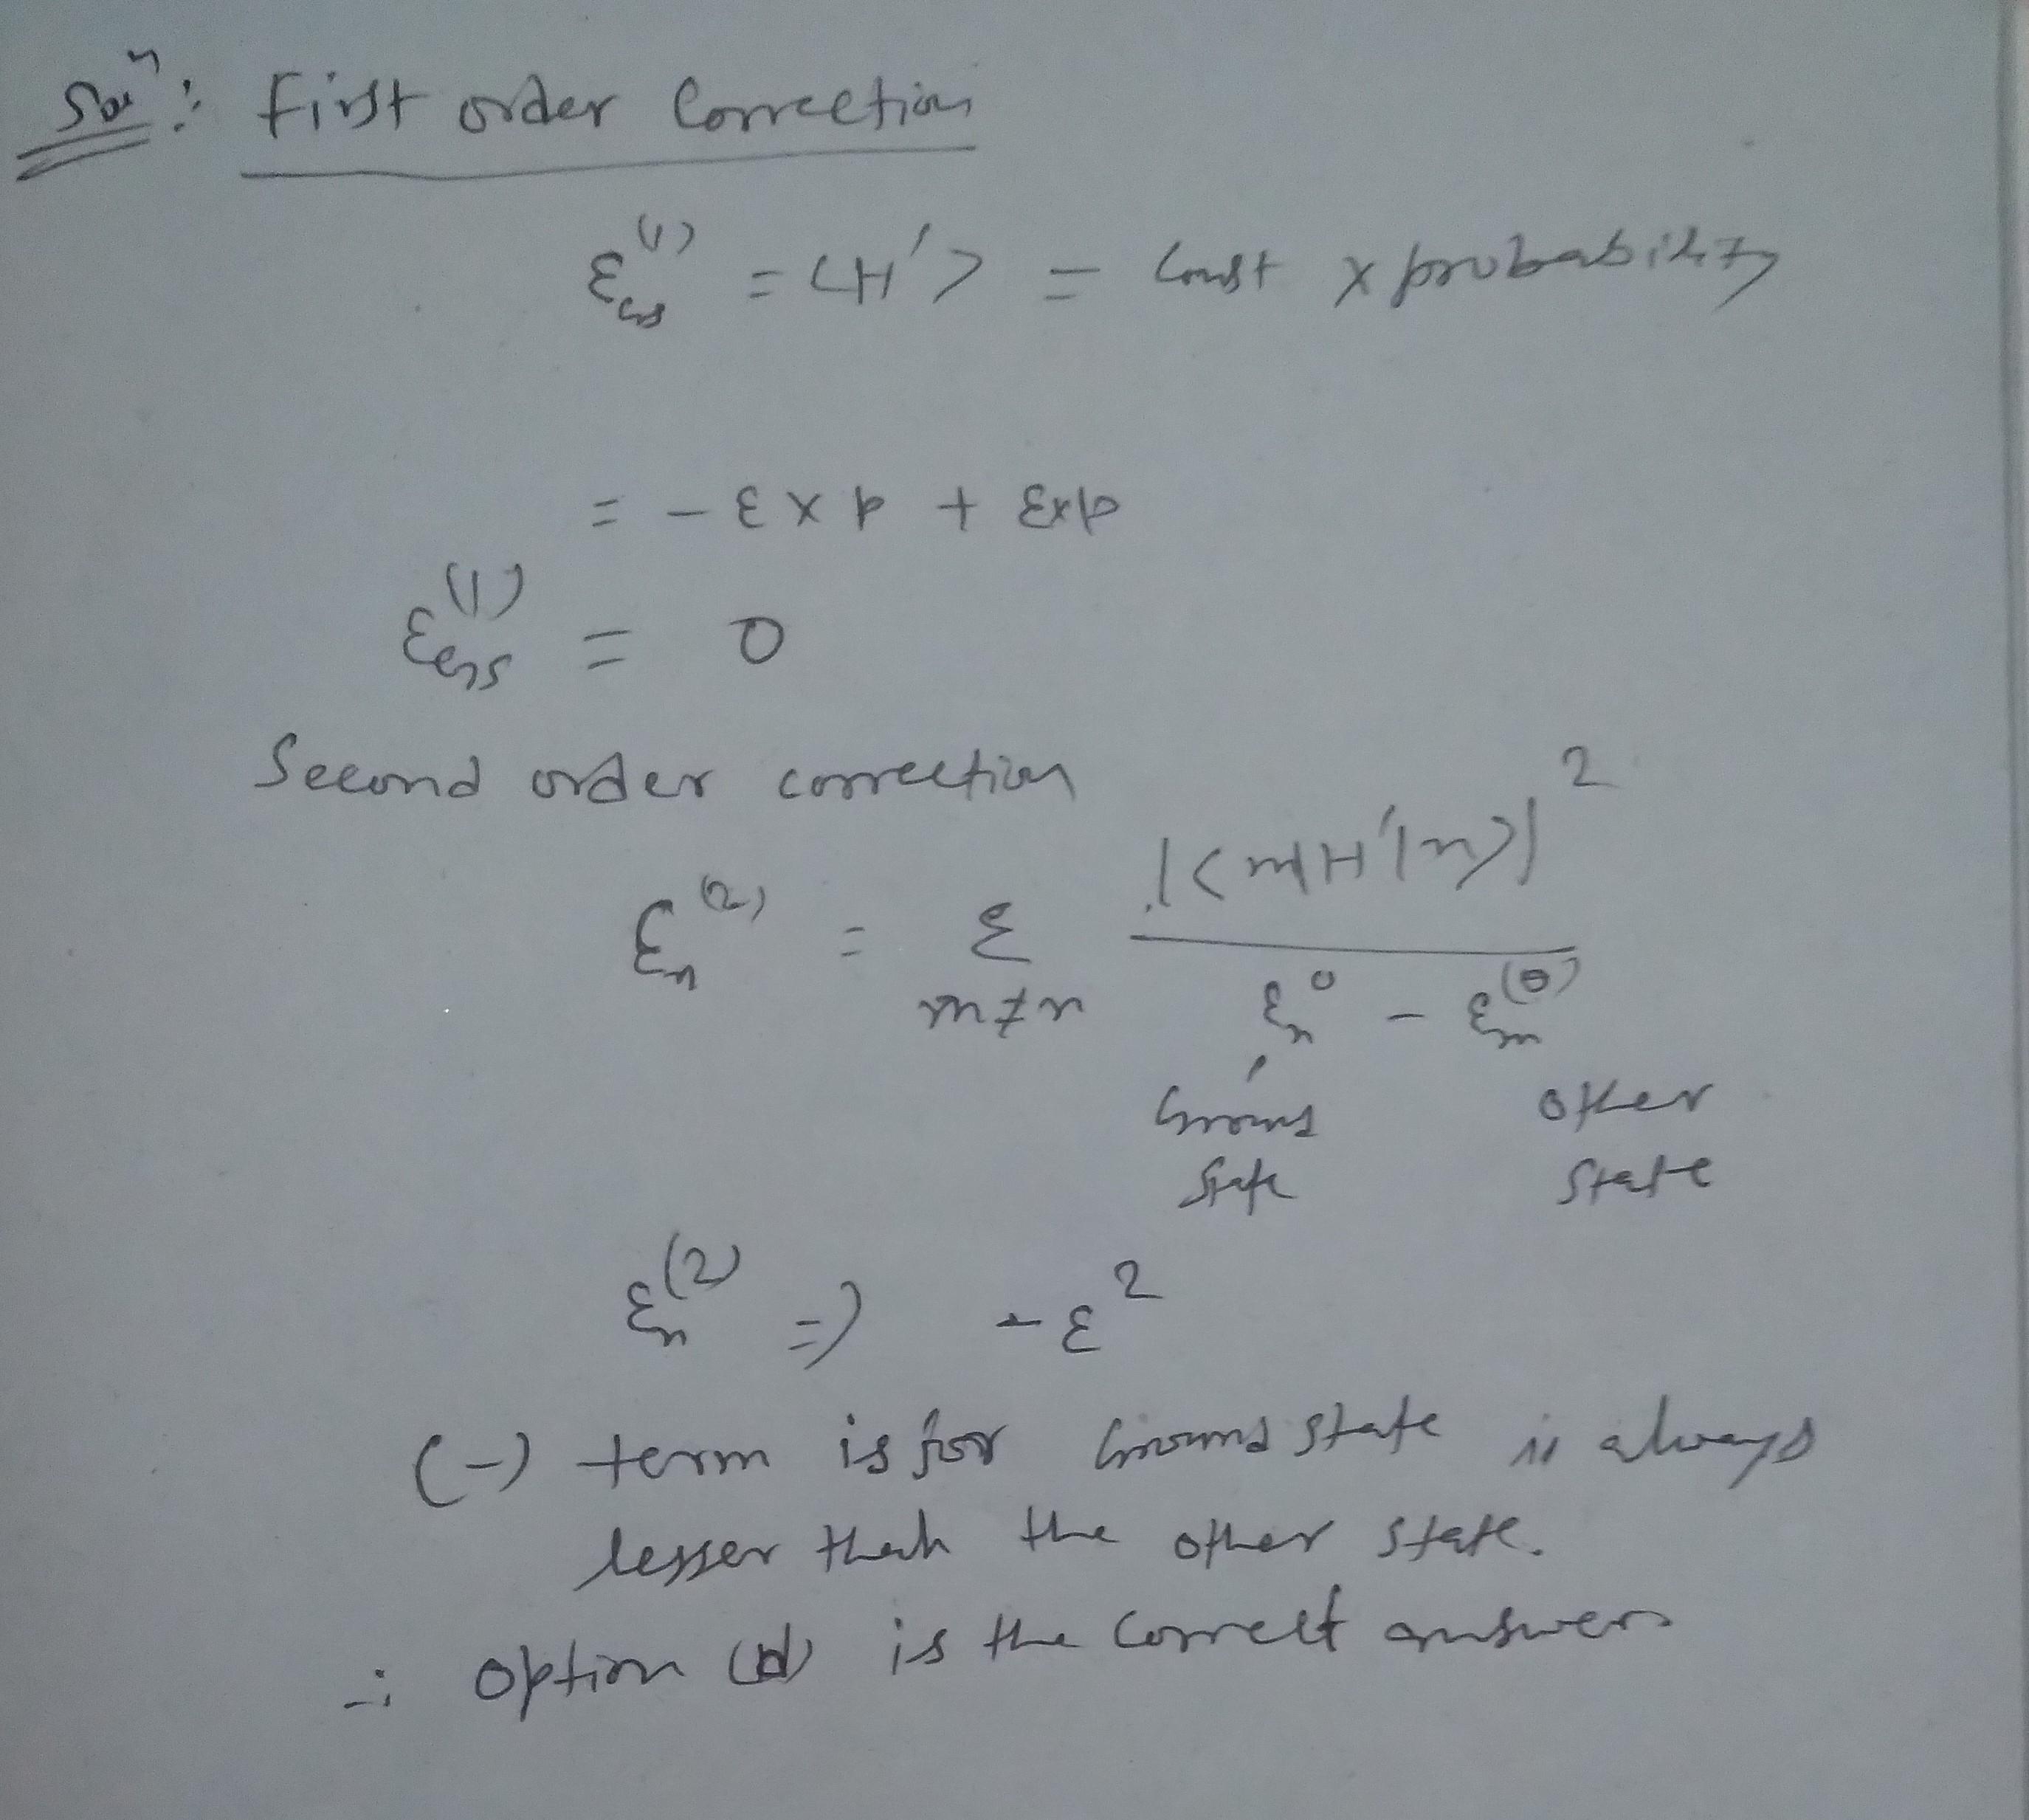 Solⁿ: First order Correction
ε_GS^(1) = <H'> = Const x probability
= - ε x p + ε x p
ε_GS^(1) = 0
Second order correction
2
|<m|H'|n>|
ε_n^(2) = Σ
m≠n ε_n^0 - ε_m^(0)
Ground other
State State
ε_n^(2) => - ε^2
(-) term is for Ground state is always
lesser than the other state.
∴ option (d) is the correct answer